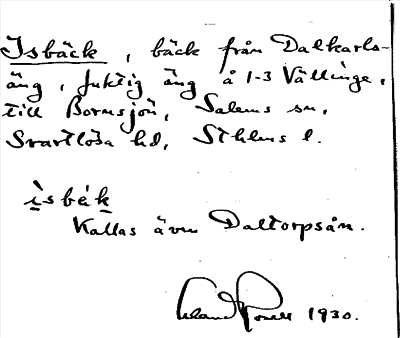 Isbäck, bäck från Dalkarls-
äng, fuktig äng å 1-3 Vällinge,
till Bornsjön, Salems sn,
Svartlösa hd, Sthlms l.
ìsbék
Kallas även Daltorpsån.
Erland Rosell 1930.